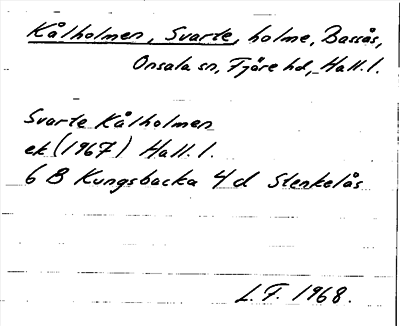 Kålholmen, Svarte, holme, Bassås,
Onsala sn, Fjäre hd, Hall. l.
Svarte Kålholmen
ek (1967) Hall. l.
6 B Kungsbacka 4 d Stenkelås
L.F. 1968.